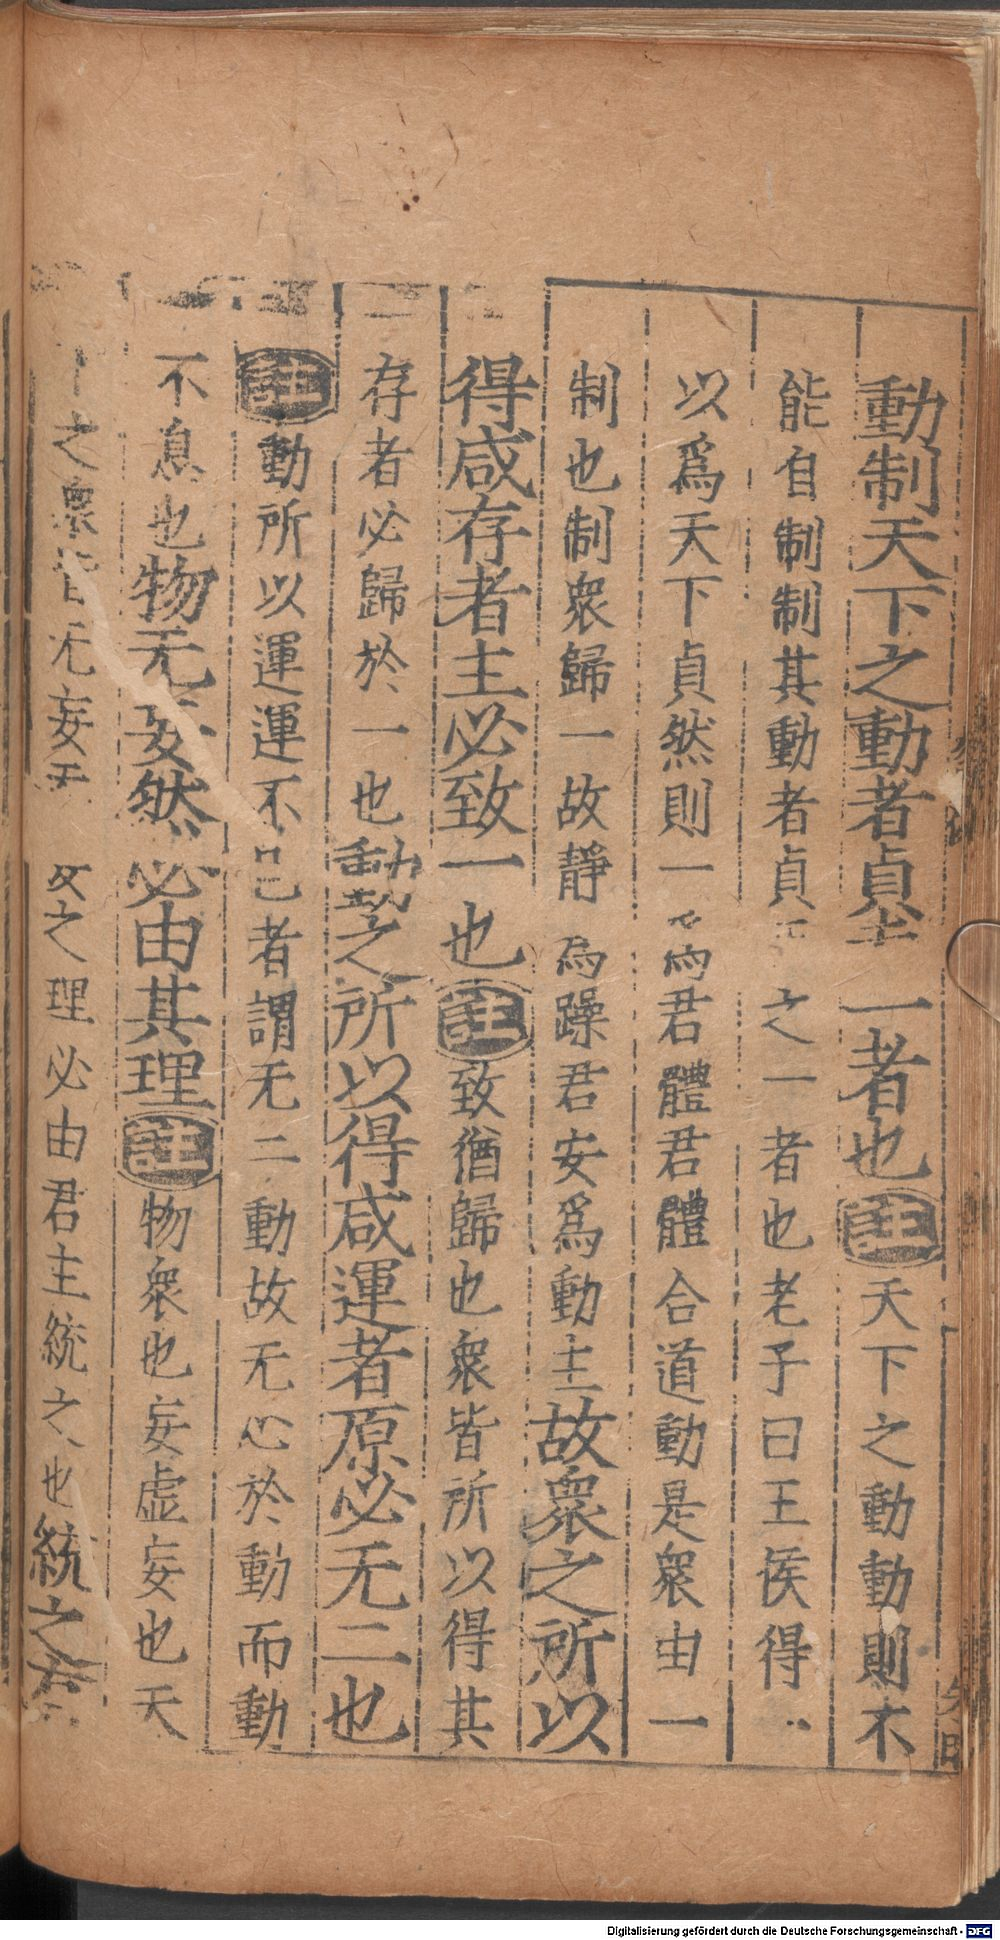 動制天下之動者貞一者也註天下之動動則不
能自制制其動者貞之一者也老子曰王侯得
以爲天下貞然則一爲君體君體合道動是衆由一
制也制衆歸一故靜爲躁君安爲動主故衆之所以
得咸存者主必致一也註致猶歸也衆皆所以得其
存者必歸於一也動之所以得咸運者原必无二也
註動所以運運不已者謂无二動故无心於動而動
不息也物无妄然必由其理註物衆也妄虛妄也天
下之衆皆无妄之理必由君主統之也統之
Digitalisierung gefördert durch die Deutsche Forschungsgemeinschaft - DFG